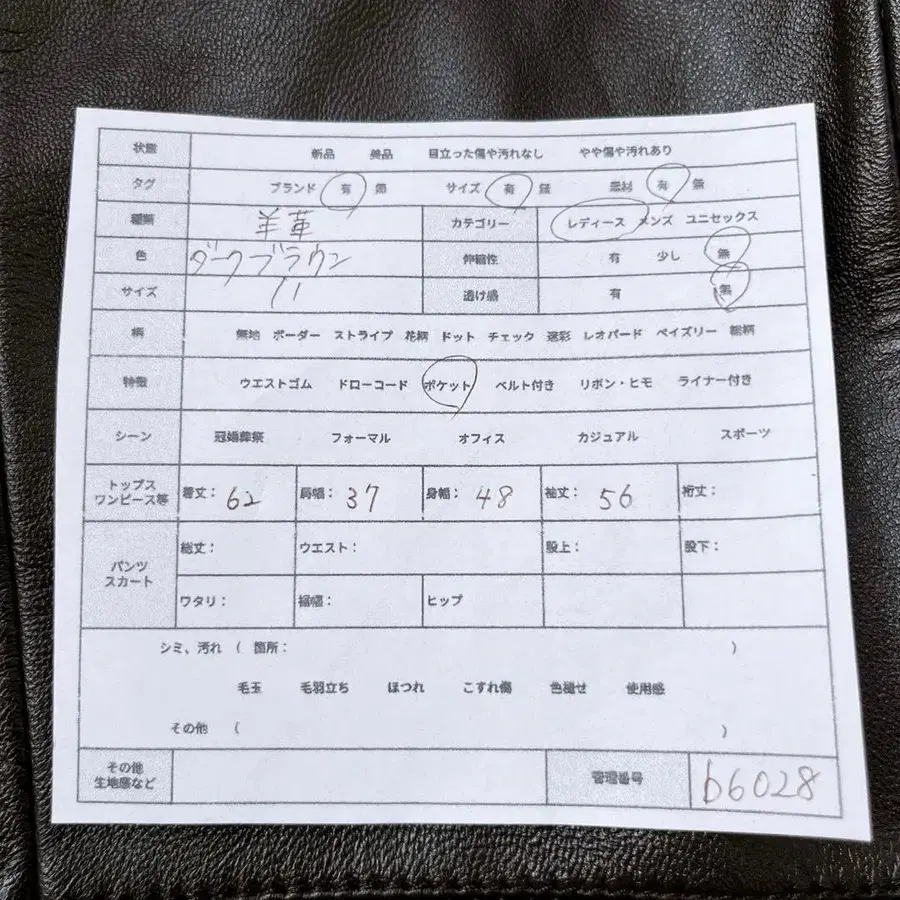 状態 新品 美品 目立った傷や汚れなし やや傷や汚れあり
タグ ブランド 有 無 サイズ 有 無 素材 有 無
種類 羊革 カテゴリー レディース メンズ ユニセックス
色 ダークブラウン 伸縮性 有 少し 無
サイズ 11 透け感 有 無
柄 無地 ボーダー ストライプ 花柄 ドット チェック 迷彩 レオパード ペイズリー 総柄
特徴 ウエストゴム ドローコード ポケット ベルト付き リボン・ヒモ ライナー付き
シーン 冠婚葬祭 フォーマル オフィス カジュアル スポーツ
トップス
ワンピース等 着丈: 62 肩幅: 37 身幅: 48 袖丈: 56 裄丈:
パンツ
スカート 総丈: ウエスト: 股上: 股下:
ワタリ: 裾幅: ヒップ
シミ、汚れ ( 箇所: )
毛玉 毛羽立ち ほつれ こすれ傷 色褪せ 使用感
その他 ( )
その他
生地感など 管理番号 b6028